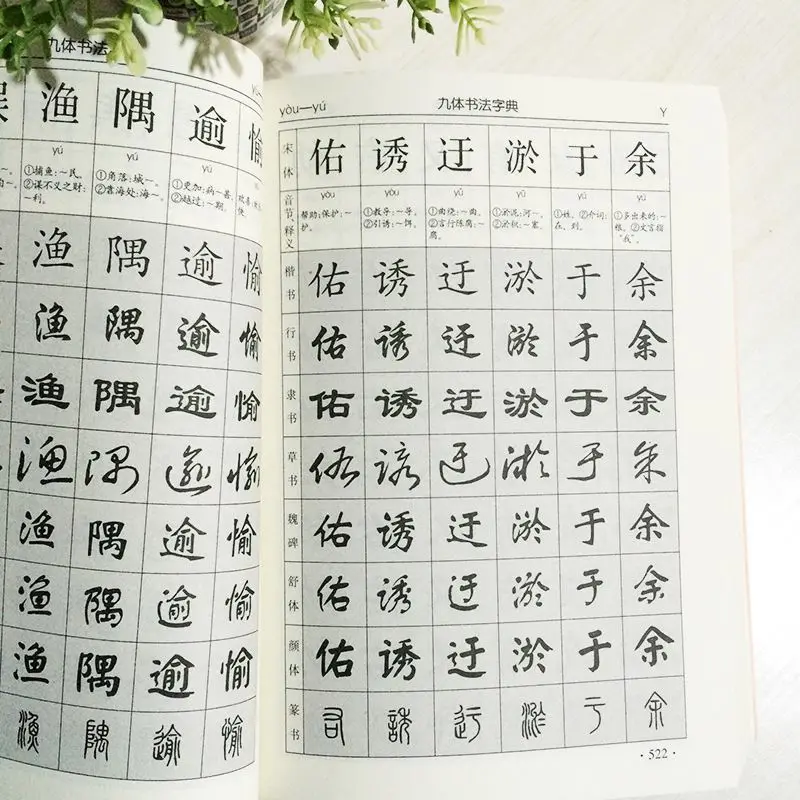 九体书法
渔 隅 逾 愉
yú yú yú
①捕鱼:～民。 ①角落:城～。 ①更加:病～甚。
②谋不义之财:～利。 ②靠海处:海～。 ②越过:～期。
渔 隅 逾 愉
渔 隅 逾 愉
渔 隅 逾 愉
渔 隅 逾 愉
渔 隅 逾 愉
渔 隅 逾 愉
渔 隅 逾 愉
渔 隅 逾 愉
yòu—yú 九体书法字典 Y
宋体 佑 诱 迂 淤 于 余
音节、释义 yòu yòu yū yū yú yú
帮助:保护:～护。 ①教导:～导。②引诱:～饵。 ①曲绕:～曲。②言行陈腐:～腐。 ①淤泥:河～。②淤积:～塞。 ①姓。②介词:在、到。 ①多出来的:～粮。②文言指“我”。
楷书 佑 诱 迂 淤 于 余
行书 佑 诱 迂 淤 于 余
隶书 佑 诱 迂 淤 于 余
草书 佑 诱 迂 淤 于 余
魏碑 佑 诱 迂 淤 于 余
舒体 佑 诱 迂 淤 于 余
颜体 佑 诱 迂 淤 于 余
篆书 佑 诱 迂 淤 于 余
·522·